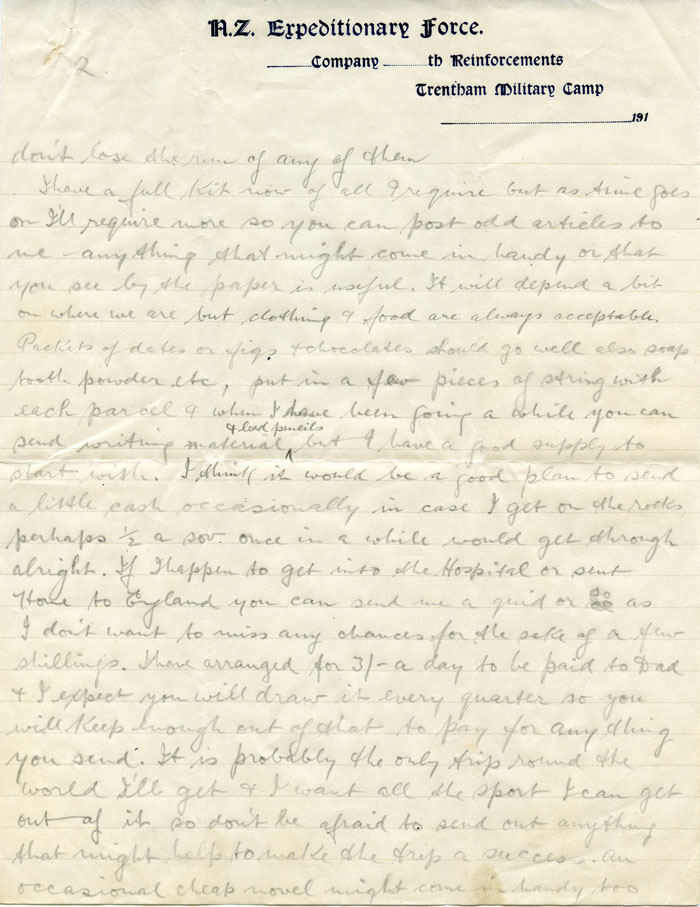 N.Z. Expeditionary Force.
Company th Reinforcements
Trentham Military Camp
191
2
don't lose the run of any of them
I have a full Kit now of all I require but as time goes
on I'll require more so you can post odd articles to
me - anything that might come in handy or that
you see by the paper is useful. It will depend a bit
on where we are but clothing & food are always acceptable.
Packets of dates or figs & chocolates should go well also soap
tooth powder etc, put in a few pieces of string with
each parcel & when I have been going a while you can
& lead pencils
send writing material, but I have a good supply to
start with. I think it would be a good plan to send
a little cash occasionally in case I get on the rocks,
perhaps ½ a sov. once in a while would get through
alright. If I happen to get into the Hospital or sent
Home to England you can send me a quid or so as
I don't want to miss any chances for the sake of a few
shillings. I have arranged for 3/- a day to be paid to Dad
& I expect you will draw it every quarter so you
will Keep enough out of that to pay for anything
you send. It is probably the only trip round the
world I'll get & I want all the sport I can get
out of it so don't be afraid to send out anything
that might help to make the trip a success. An
occasional cheap novel might come in handy too